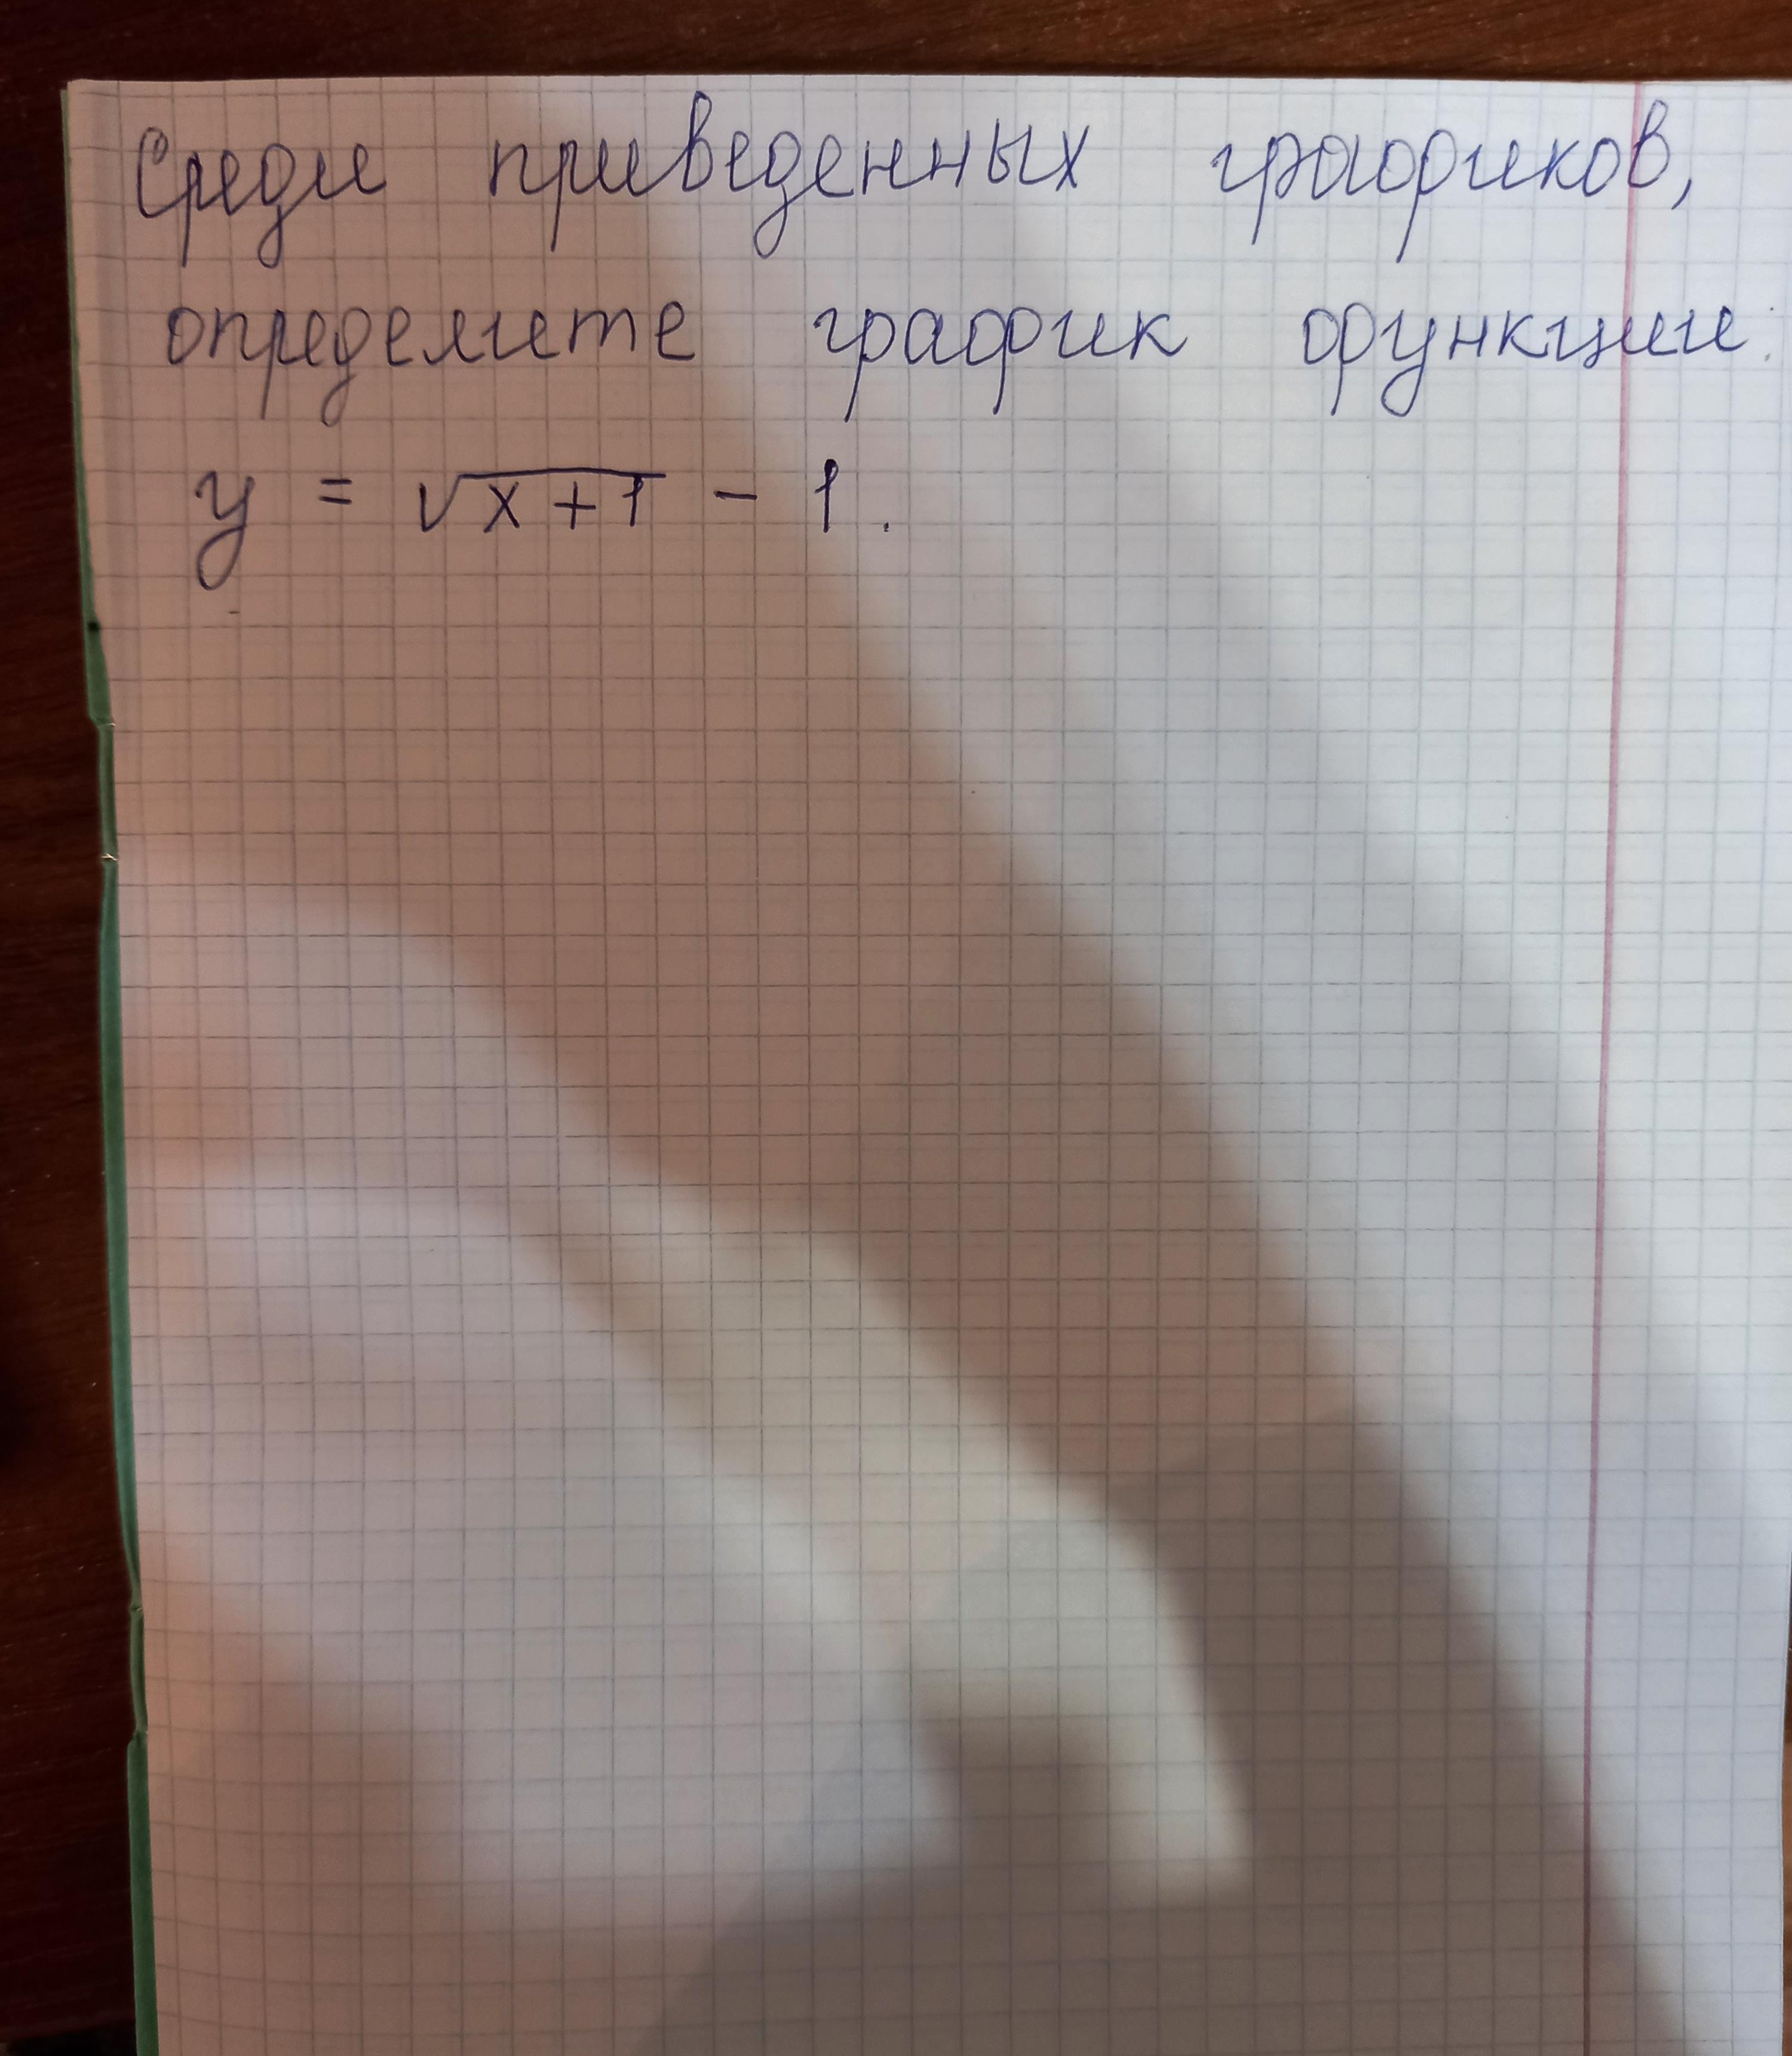 Среди приведенных графиков,
определите график функции:
y = √x+1 - 1.